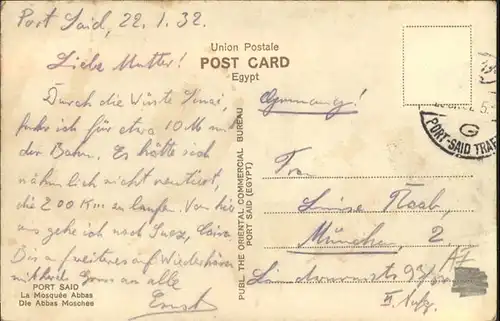 Port Said, 22. 1. 32.
Liebe Mutter!
Durch die Wüste Sinai,
fuhr ich für etwa 10 M mit
der Bahn. Es hätte sich
nähmlich nicht rentiert,
die 200 Km zu laufen. Von hier
aus gehe ich nach Suez, Cairo
Bis auf weiteres auf Wiederhören
Gruss an alle
Ernst
PORT SAID
La Mosquée Abbas
Die Abbas Moschee
Union Postale
POST CARD
Egypt
Germany!
PUBL. THE ORIENTAL COMMERCIAL BUREAU
PORT SAID (EGYPT)
Frau
Luise
München, 2
II.
G
PORT-SAID TRAF